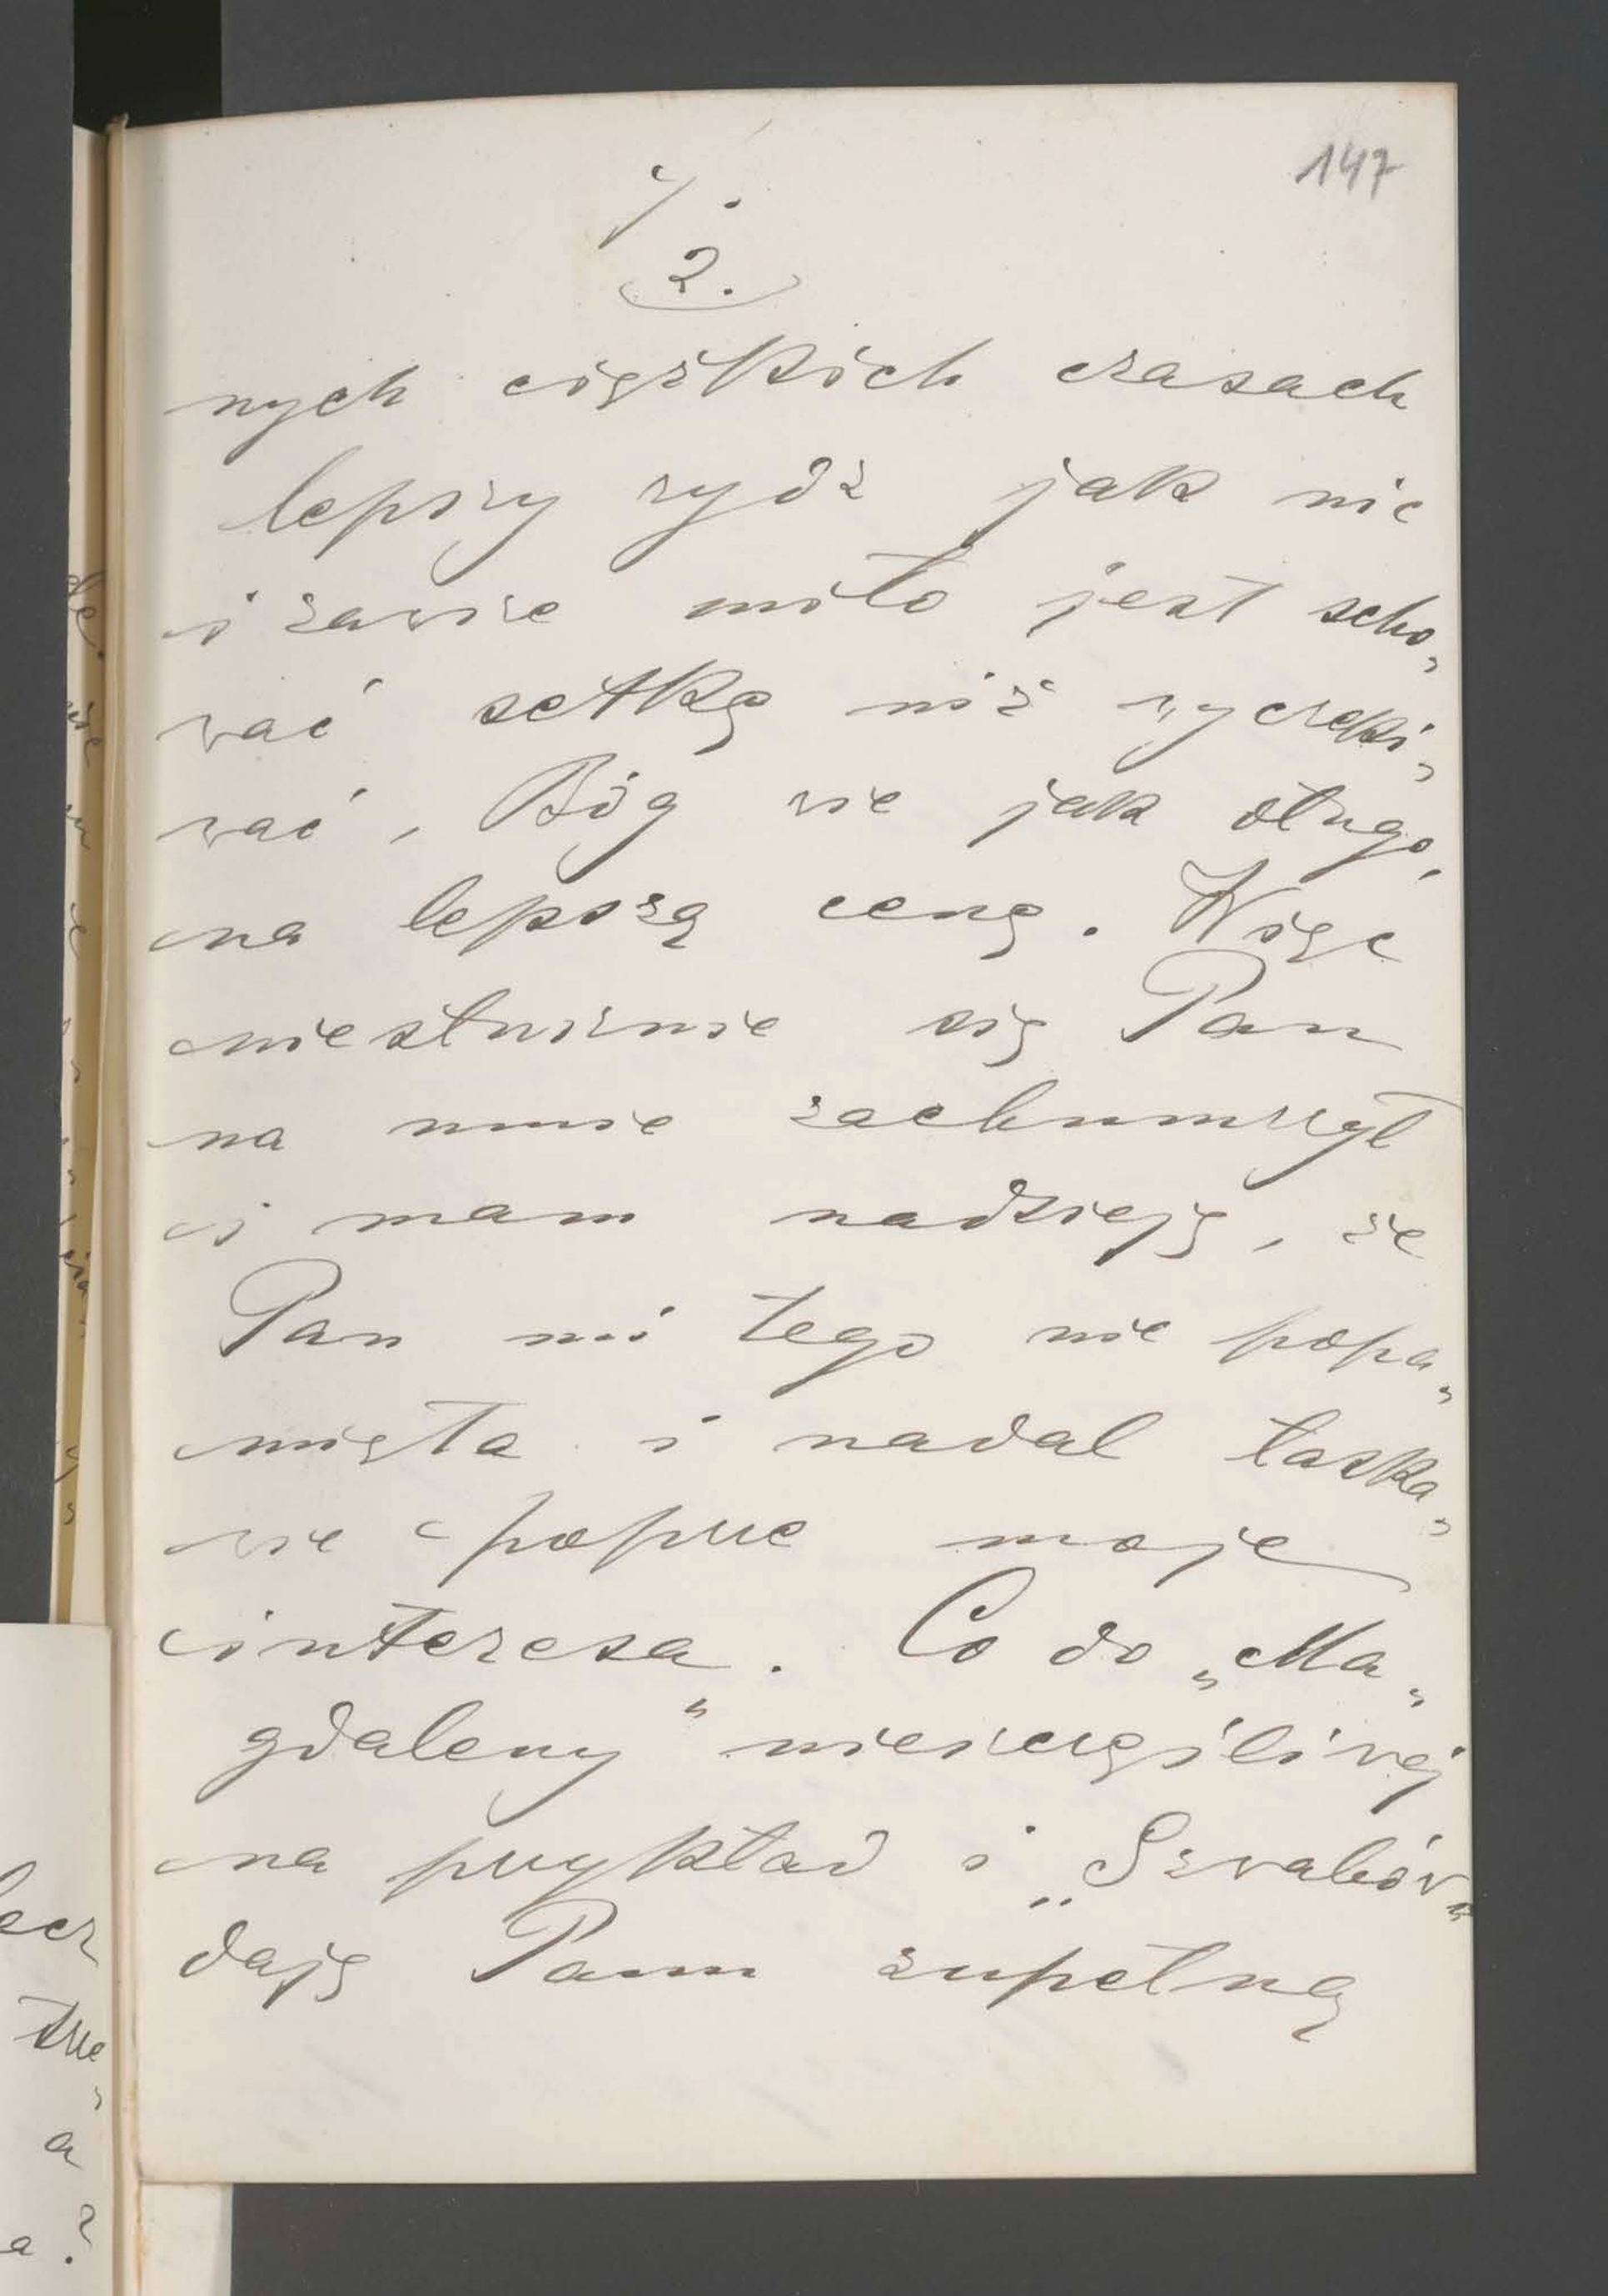 147
2.
nych ciężkich czasach
lepszy rydz jak nic
i zawsze miło jest scho„
wać setkę niż wyczeki„
wać, Bóg wie jak długo,
na lepszą cenę. Więc
niesłusznie się Pan
na mnie zachmurzył
i mam nadzieję, że
Pan mi tego nie popa„
mięta i nadal łaska„
wie poprze moje
interesa. Co do „Ma„
gdaleny" nieszczęśliwej
na przykład i „Szwabów"
daję Panu zupełną